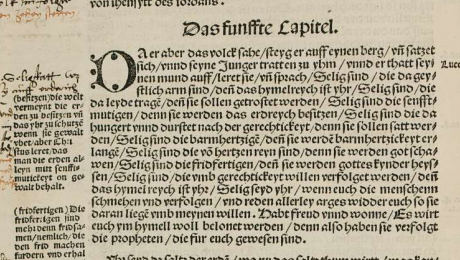 von ihensytt des iordans.
Das funffte Capitel.
DA er aber das volck sahe/ steyg er auff eynen berg/ vñ satzet
sich/ vnnd seyne Junger tratten zu yhm/ vnnd er thatt sey-
nen mund auff/ leret sie/ vñ sprach/ Selig sind/ die da gey-
stlich arm sind/ denn das hymelreych ist yhr/ Selig sind/ die
da leyde tragē/ denn sie sollen getrostet werden/ Selig sind die senfft-
mutigen/ denn sie werden das erdreych besitzen/ Selig sind die da
hungert vnnd durstet nach der gerechtickeyt/ denn sie sollen satt wer-
den/ Selig sind die barmhertzigē/ denn sie werdē barmhertzickeyt er-
langē/ Selig sind die võ hertzen reyn sind/ denn sie werden got scha-
wen/ Selig sind die fridfertigen/ denn sie werden gottes kynder heys-
sen/ Selig sind/ die vmb gerechtickeyt willen verfolget werden/ denn
das hymel reych ist yhr/ Selig seyd yhr/ wenn euch die menschenn
schmehen vnd verfolgen/ vnd reden allerley arges widder euch so sie
daran liegē vmb meynen willen. Habt freud vnnd wonne/ Es wirt
euch ym hymell woll belonet werden/ denn also haben sie verfolgt
die propheten/ die fur euch gewesen sind.
Luce
(besitzen) die welt
vermeynt die er-
den zu besitzen vñ
das yhr zu schutzē
wenn sie gewalt
vbet/ aber Chri
stus leret/ das
man die erden al-
leyn mit senfft-
mutickeyt on ge-
walt behalt.
(fridfertigen) Die
fridfertigen sind
mehr denn fridsa-
men/ nemlich/ die
den frid machen
furdern vnd erhal